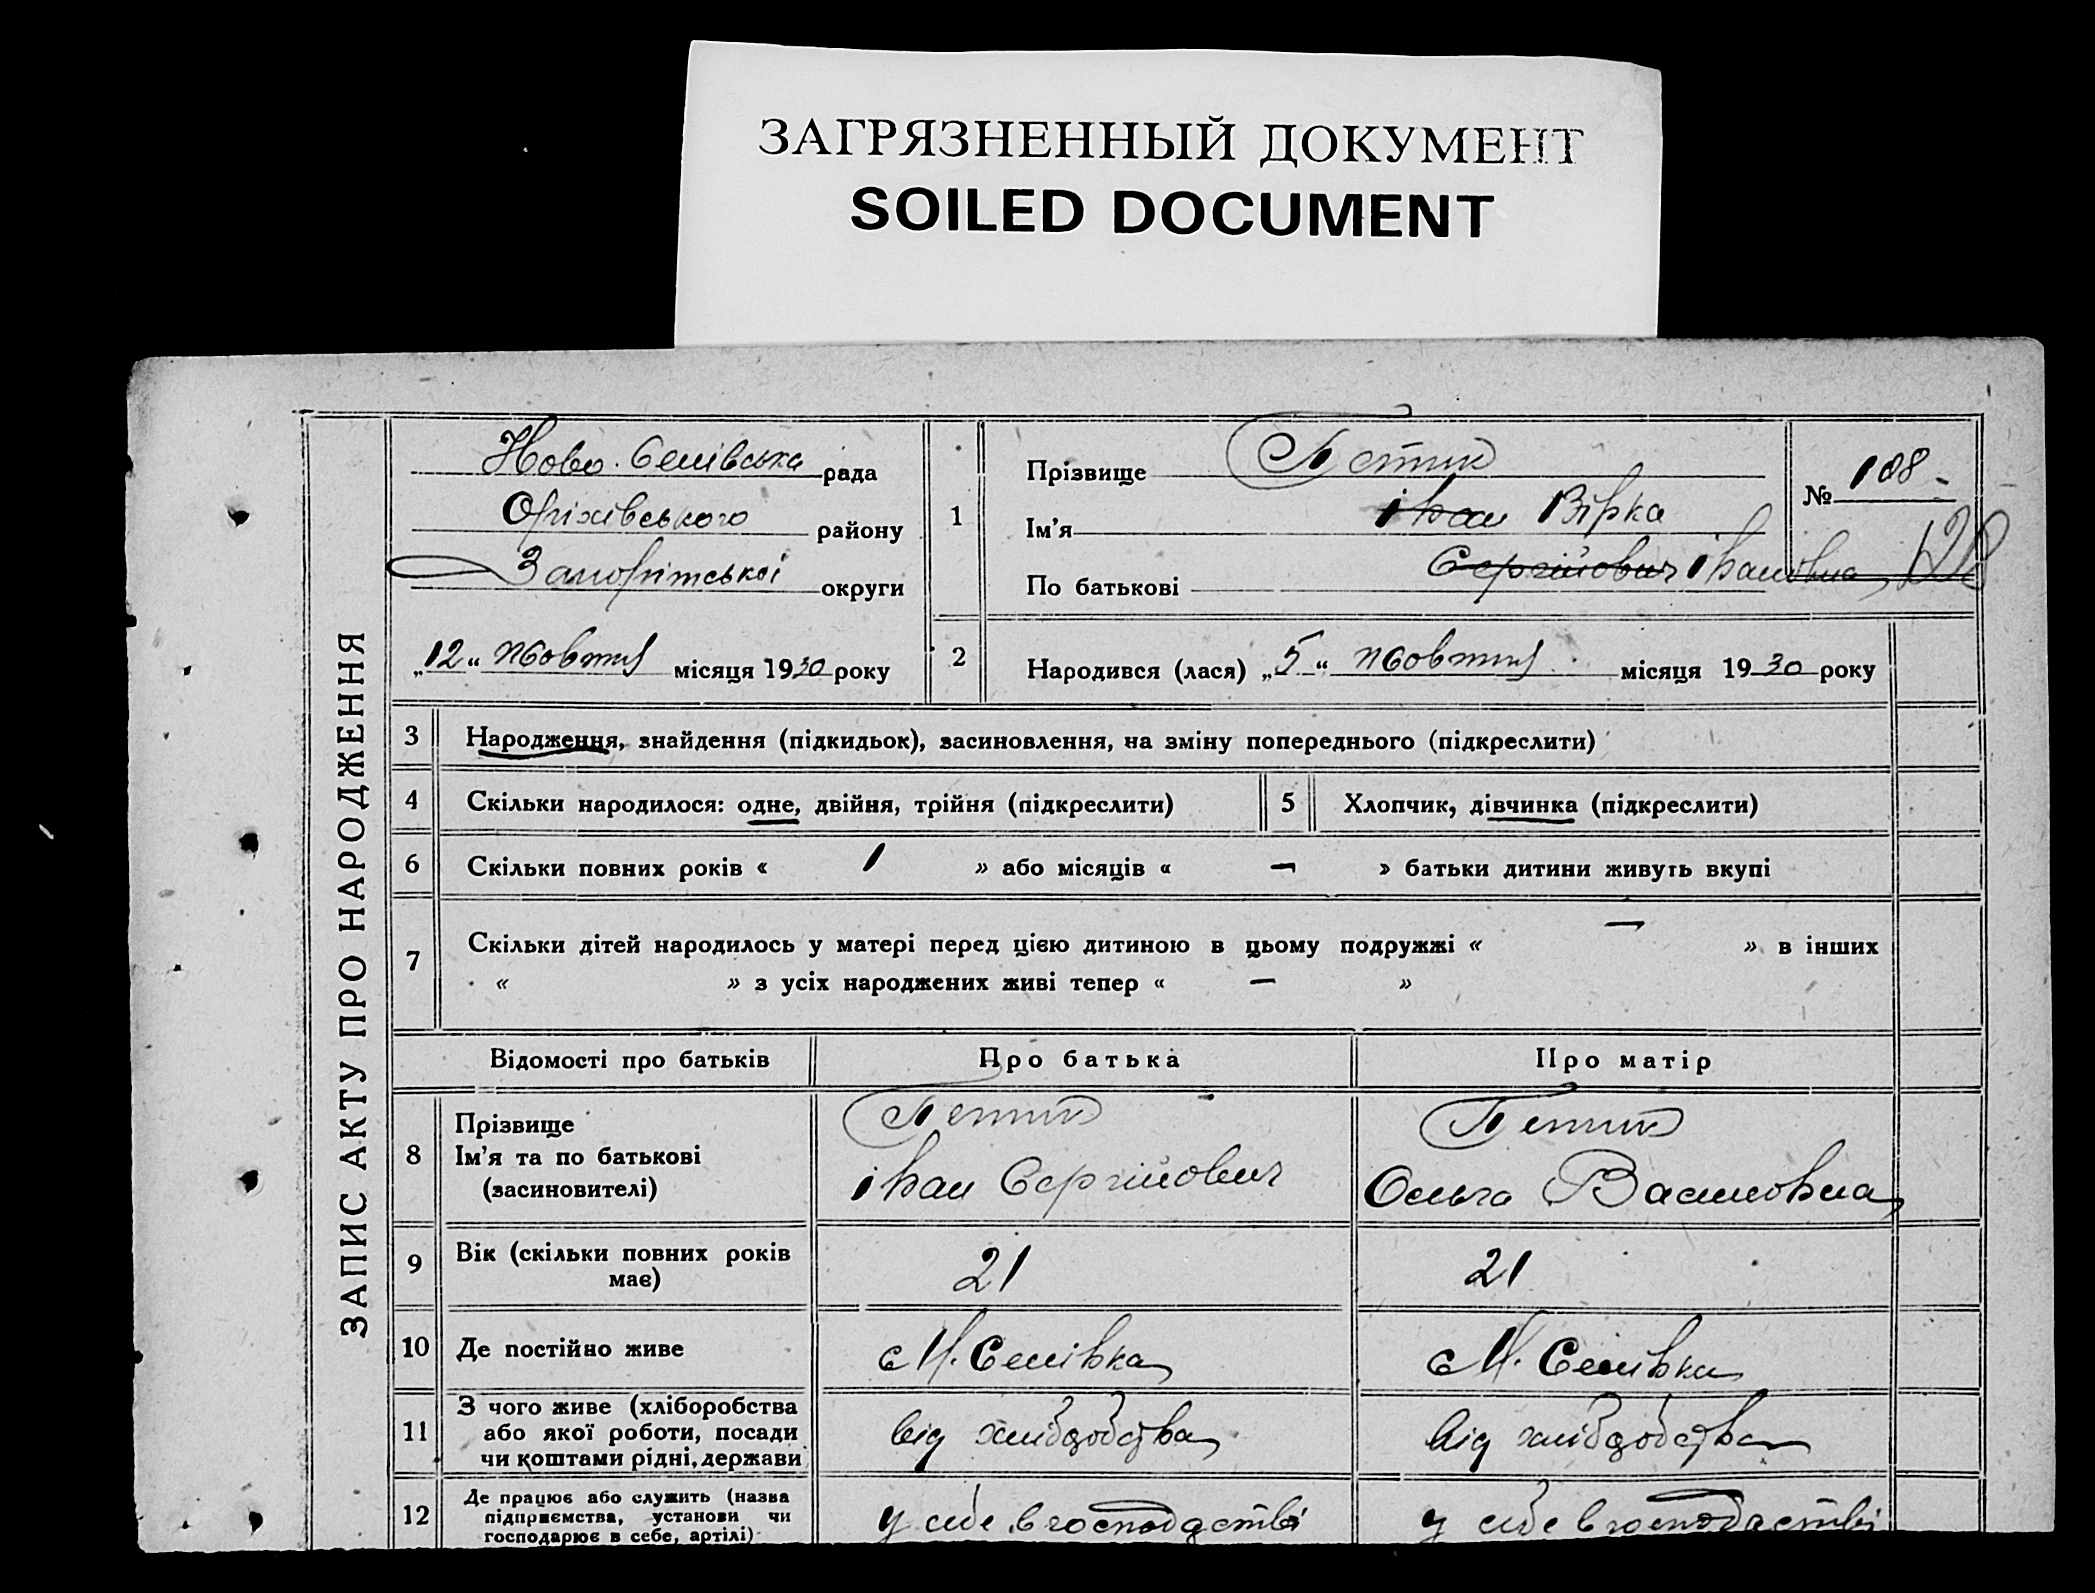 ЗАГРЯЗНЕННЫЙ ДОКУМЕНТ
SOILED DOCUMENT
ЗАПИС АКТУ ПРО НАРОДЖЕННЯ
Ново. Селівська рада
Оріхівського району
Запорітської округи
„12“ жовтня місяця 1930 року
1
Прізвище Петик
Ім’я Іван Вірка
По батькові Сергійович Івановна
№ 108
128
2 Народився (лася) „5“ жовтня місяця 1930 року
3 Народження, знайдення (підкидьок), засиновлення, на зміну попереднього (підкреслити)
4 Скільки народилося: одне, двійня, трійня (підкреслити) 5 Хлопчик, дівчинка (підкреслити)
6 Скільки повних років « 1 » або місяців « — » батьки дитини живуть вкупі
7 Скільки дітей народилось у матері перед цією дитиною в цьому подружжі « — » в інших
« » з усіх народжених живі тепер « — »
Відомості про батьків Про батька Про матір
8 Прізвище
Ім’я та по батькові
(засиновителі)
Петик
Іван Сергійович
Петик
Ольга Василовна
9 Вік (скільки повних років
має)
21 21
10 Де постійно живе с М. Селівка с М. Селівка
11 З чого живе (хліборобства
або якої роботи, посади
чи коштами рідні, держави
від хлібробства від хлібробства
12 Де працює або служить (назва
підприємства, установи чи
господарює в себе, артілі)
у себе в господастві у себе в господастві